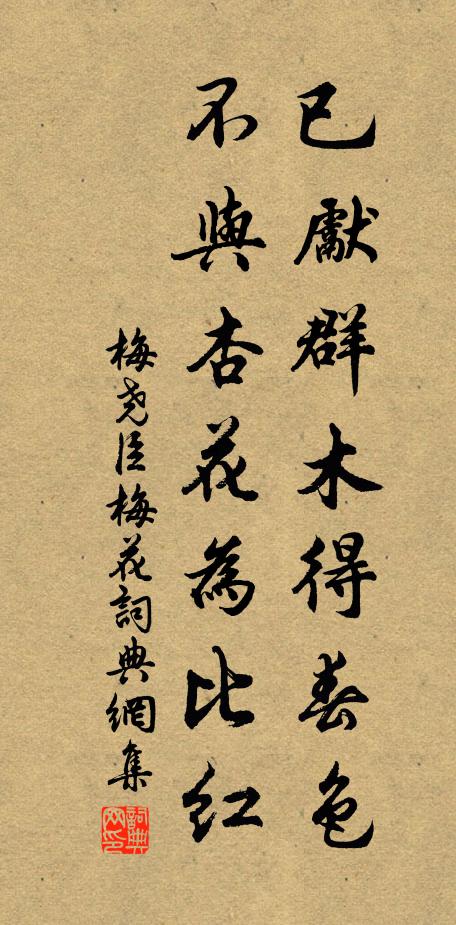 已獻群木得春色
不與杏花為比紅
梅堯臣梅花詞典網集
詞典网印